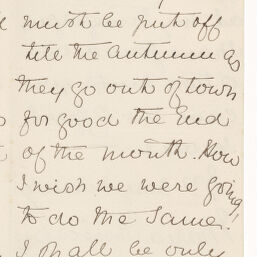 must be put off
till the Autumn as
they go out of town
for good the End
of the month. How
I wish we were going
to do the same!
I shall be only